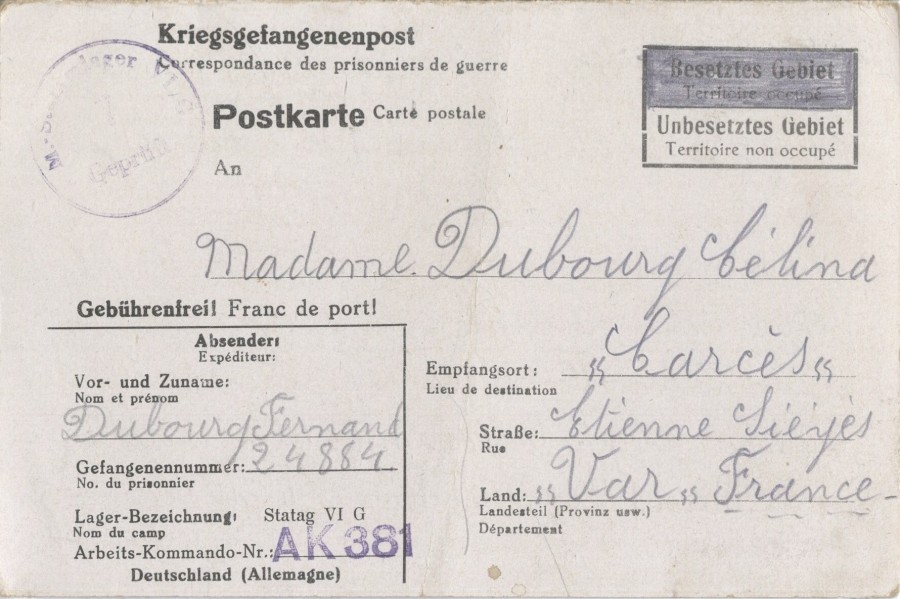 Kriegsgefangenenpost
Correspondance des prisonniers de guerre
Postkarte Carte postale
An
M.-Stammlager VI/G
Geprüft
Besetztes Gebiet
Territoire occupé
Unbesetztes Gebiet
Territoire non occupé
Madame. Dubourg Célina
Gebührenfrei! Franc de port!
Absender:
Expéditeur:
Vor- und Zuname:
Nom et prénom
Dubourg Fernand
Gefangenennummer: 24884.
No. du prisonnier
Lager-Bezeichnung: Statag VI G
Nom du camp
Arbeits-Kommando-Nr.: AK 381
Deutschland (Allemagne)
Empfangsort: „Carcès„
Lieu de destination
Straße: Etienne Siéyès
Rue
Land: „Var„ France-
Landesteil (Provinz usw.)
Département